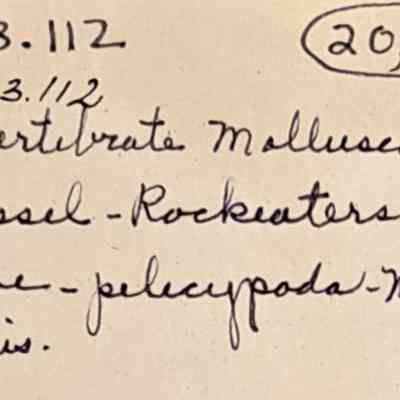 3.112 20,
3.112
ertebrate Mollusc
ssel - Rockeaters
e - pelecypoda - M
is.